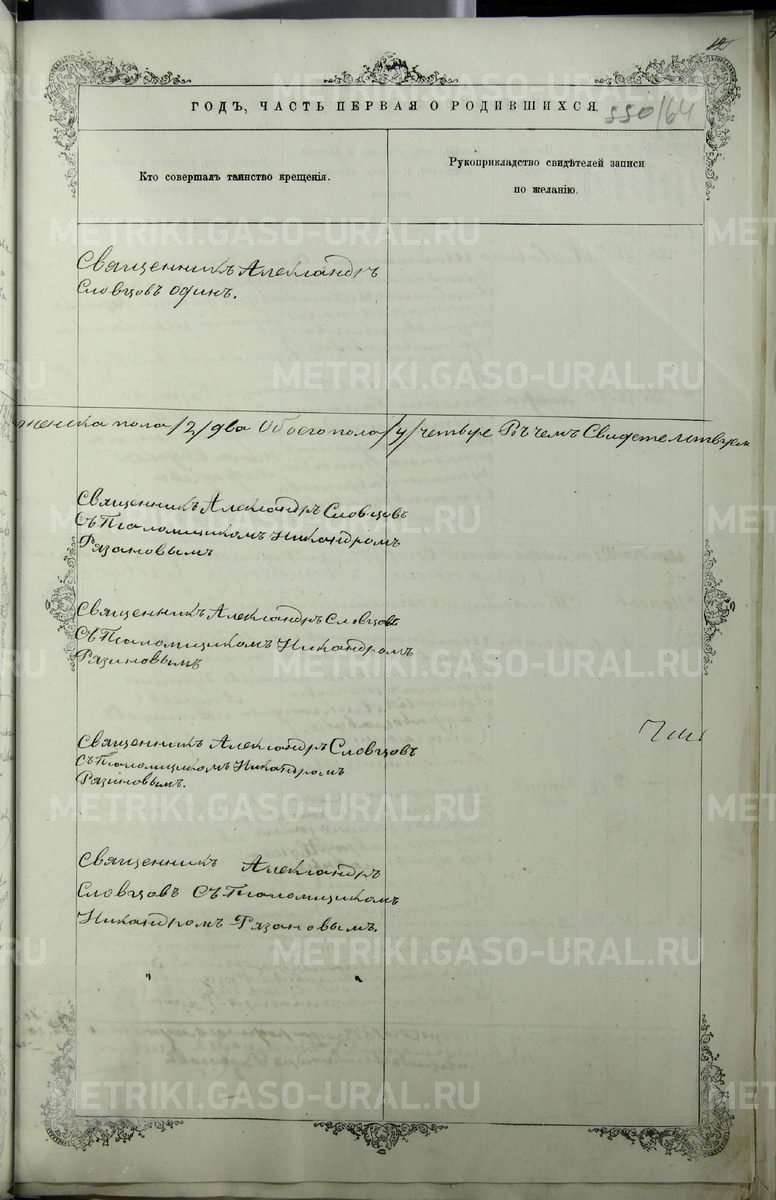 12
550/64
ГОДЪ, ЧАСТЬ ПЕРВАЯ О РОДИВШИХСЯ.
Кто совершалъ таинство крещенія.
Рукоприкладство свидѣтелей записи
по желанію.
Священникъ Александръ
Словцовъ одинъ.
женска пола /2/ два Обоего пола /4/ четыре Въ чемъ Свидетельствуем
Священникъ Александръ Словцовъ
Съ Псаломщикомъ Никандромъ
Рязановымъ
Священникъ Александръ Словцовъ
Съ Псаломщикомъ Никандромъ
Рязановымъ
Священникъ Александръ Словцовъ
Съ Псаломщикомъ Никандромъ
Рязановымъ.
Священникъ Александръ
Словцовъ Съ Псаломщикомъ
Никандромъ Рязановымъ.
METRIKI.GASO-URAL.RU